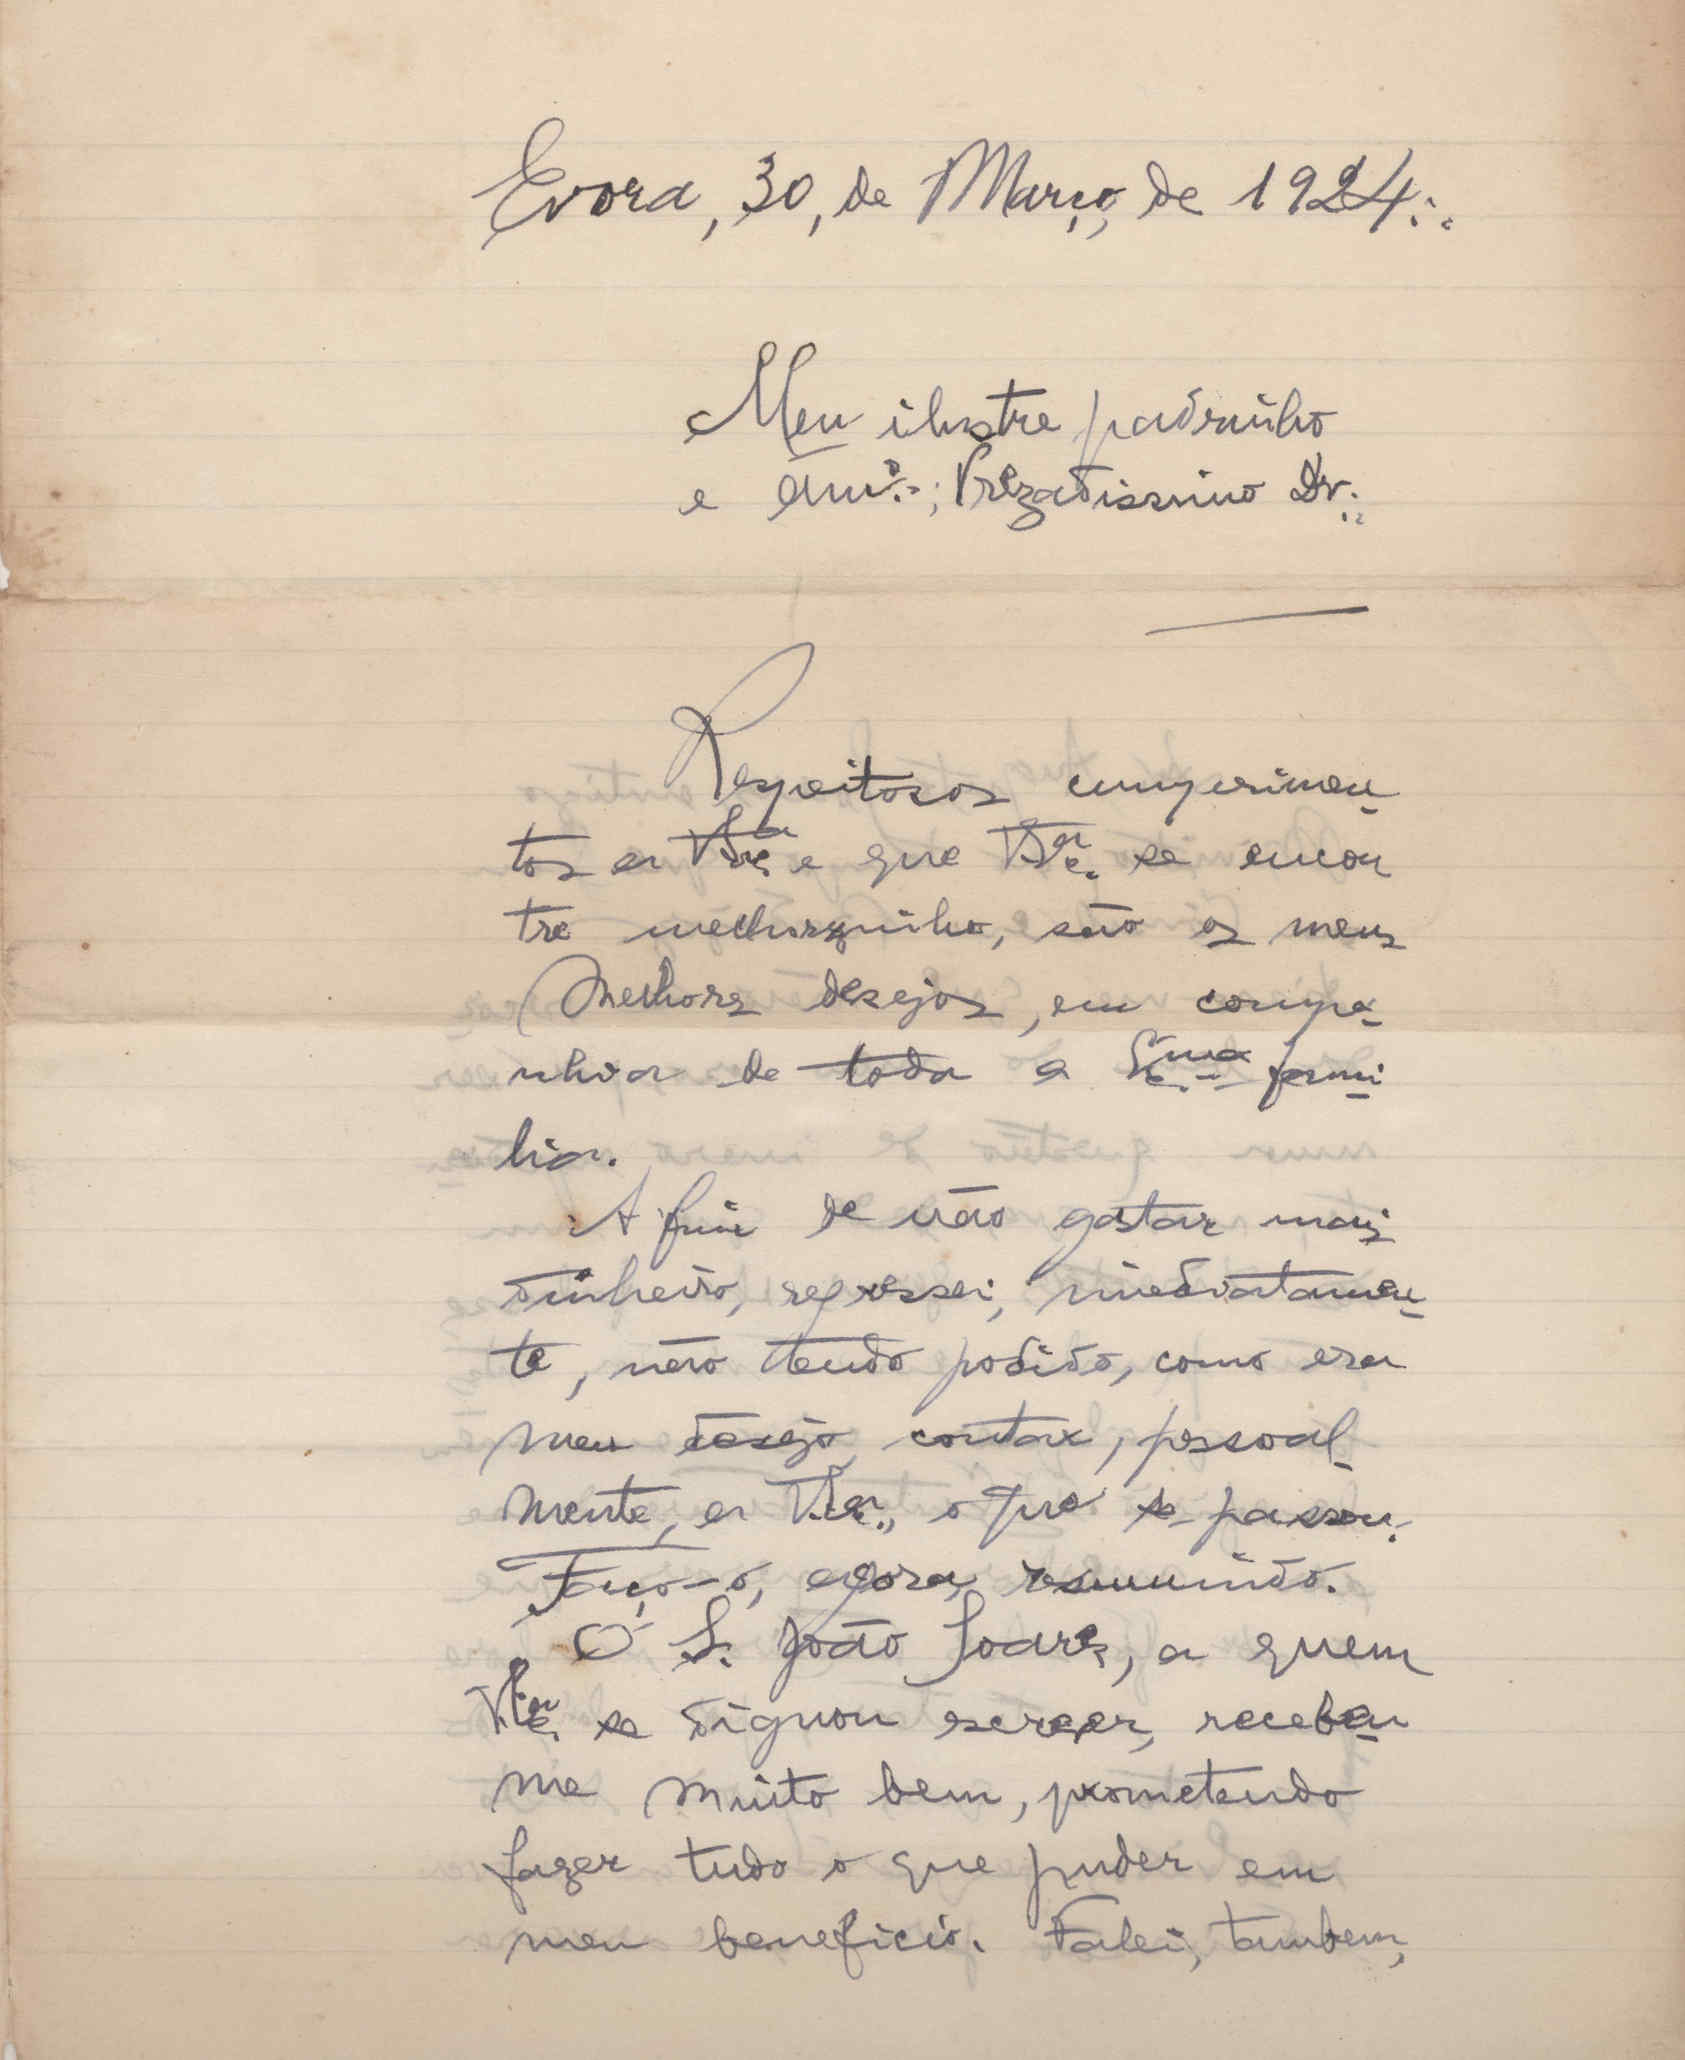 Evora, 30, de Março, de 1924.:.
Meu ilustre padrinho
e Amº.:, Prezadissimo Dr.:.
Respeitosos cumprimen-
tos a V. Exª. e que V. Exª. se encon
tre melhorzinho, são os meus
Melhores desejos, em compa-
nhia de toda a Exma. fami-
lia.
A fim de não gastar mais
dinheiro, regressei, imediatamen-
te, não tendo podido, como era
meu desejo, contar, pessoal-
mente, a V. Exª., o que se passou.
Faço-o, agora, resumindo.
O Sr. João Soares, a quem
V. Exª. se dignou escrever, recebeu-
me muito bem, prometendo
fazer tudo o que puder em
meu beneficio. Falei, tambem,